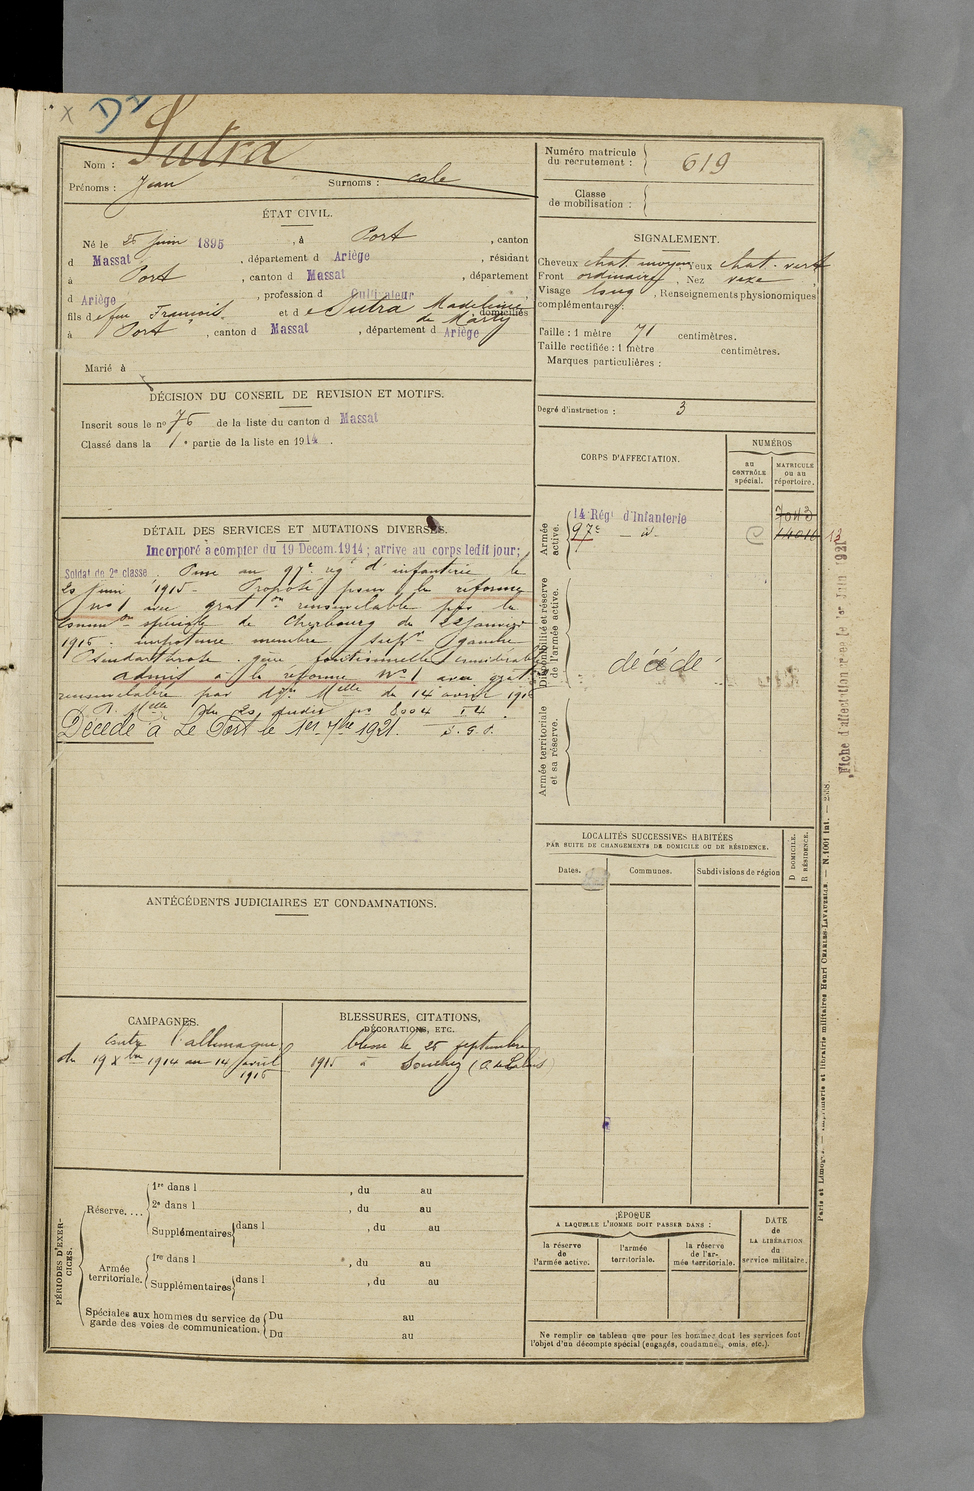 Sutra
Nom :
Prénoms : Jean Surnoms :
ÉTAT CIVIL.
Né le 25 juin 1895, à Port, canton
d Massat, département d Ariège, résidant
à Port, canton d Massat, département
d Ariège, profession d Cultivateur
fils d e feu François et d e Sutra Madeleine domiciliés
à Port, canton d Massat, département d Ariège
Marié à
DÉCISION DU CONSEIL DE REVISION ET MOTIFS.
Inscrit sous le no 76 de la liste du canton d Massat
Classé dans la 1e partie de la liste en 1914.
DÉTAIL DES SERVICES ET MUTATIONS DIVERSES.
Incorporé à compter du 19 Décem. 1914; arrive au corps ledit jour;
Soldat de 2e classe. Passé au 97e régt d'infanterie le
20 juin 1915 - Proposé pour la réforme
no 1 avec grat on renouvelable par la
Comm on spéciale de Cherbourg du 22 janvier
1916 - impotence membre supr gauche
Pseudarthrose gêne fonctionnelle considérable
admis à la réforme No 1 avec grat
renouvelable par don Melle du 14 avril 1916
Décédé à Le Port le 1er 7bre 1921.
ANTÉCÉDENTS JUDICIAIRES ET CONDAMNATIONS.
CAMPAGNES.
Contre l'allemagne
du 19 Xbre 1914 au 14 avril
1916
BLESSURES, CITATIONS,
DÉCORATIONS, ETC.
blessé le 25 septembre
1915 à Souchez (P. de Calais)
PÉRIODES D'EXERCICES.
Réserve....
1re dans l , du au
2e dans l , du au
Supplémentaires dans l , du au
Armée territoriale.
1re dans l , du au
Supplémentaires dans l , du au
Spéciales aux hommes du service de garde des voies de communication.
Du au
Du au
Numéro matricule
du recrutement : 619
Classe
de mobilisation :
SIGNALEMENT.
Cheveux chat. moyen Yeux chat. vert
Front ordinaire, Nez vexe
Visage long, Renseignements physionomiques
complémentaires :
Taille : 1 mètre 71 centimètres.
Taille rectifiée : 1 mètre centimètres.
Marques particulières :
Degré d'instruction : 3
CORPS D'AFFECTATION.
NUMÉROS
au
CONTRÔLE
spécial.
MATRICULE
ou au
répertoire.
Armée
active.
14 Régt d'Infanterie 7043
97e - d° - 14014
Disponibilité et réserve
de l'armée active.
décédé
Armée territoriale
et sa réserve.
LOCALITÉS SUCCESSIVES HABITÉES
PAR SUITE DE CHANGEMENTS DE DOMICILE OU DE RÉSIDENCE.
Dates.
Communes.
Subdivisions de région
D DOMICILE.
R RÉSIDENCE.
ÉPOQUE
A LAQUELLE L'HOMME DOIT PASSER DANS :
la réserve
de
l'armée active.
l'armée
territoriale.
la réserve
de l'ar-
mée territoriale.
DATE
de
LA LIBÉRATION
du
service militaire.
Ne remplir ce tableau que pour les hommes dont les services font
l'objet d'un décompte spécial (engagés, condamnés, omis, etc.).
Paris et Limoges. — Imprimerie et librairie militaires Henri CHARLES-LAVAUZELLE. — N. 1001 int. —